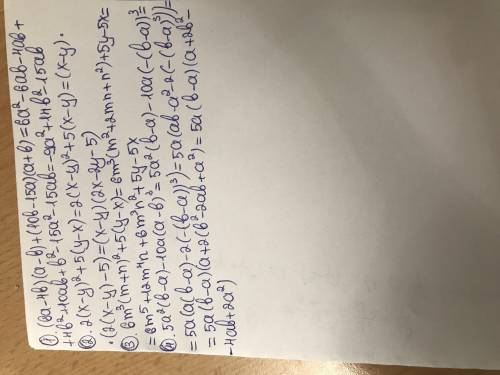 ① (6a-4b)(a-b)+(10b-15a)(a+b)=6a²-6ab-4ab+
+4b²+10ab+b²-15a²-15ab=-9a²+14b²-15ab
②. 2(x-y)²+5(y-x)=2(x-y)²+5(x-y)=(x-y)·
·(2(x-y)-5)=(x-y)(2x-2y-5)
③. 6m³(m+n)²+5(y-x)=6m³(m²+2mn+n²)+5y-5x=
=6m⁵+12m⁴n+6m³n²+5y-5x
④ 5a²(b-a)-10a(a-b)³=5a²(b-a)-10a(-(b-a))³=
=5a(a(b-a)-2(-(b-a))³)=5a(ab-a²-2(-(b-a)³))=
=5a(b-a)(a+2(b²-2ab+a²)=5a(b-a)(a+2b²-
-4ab+2a²)